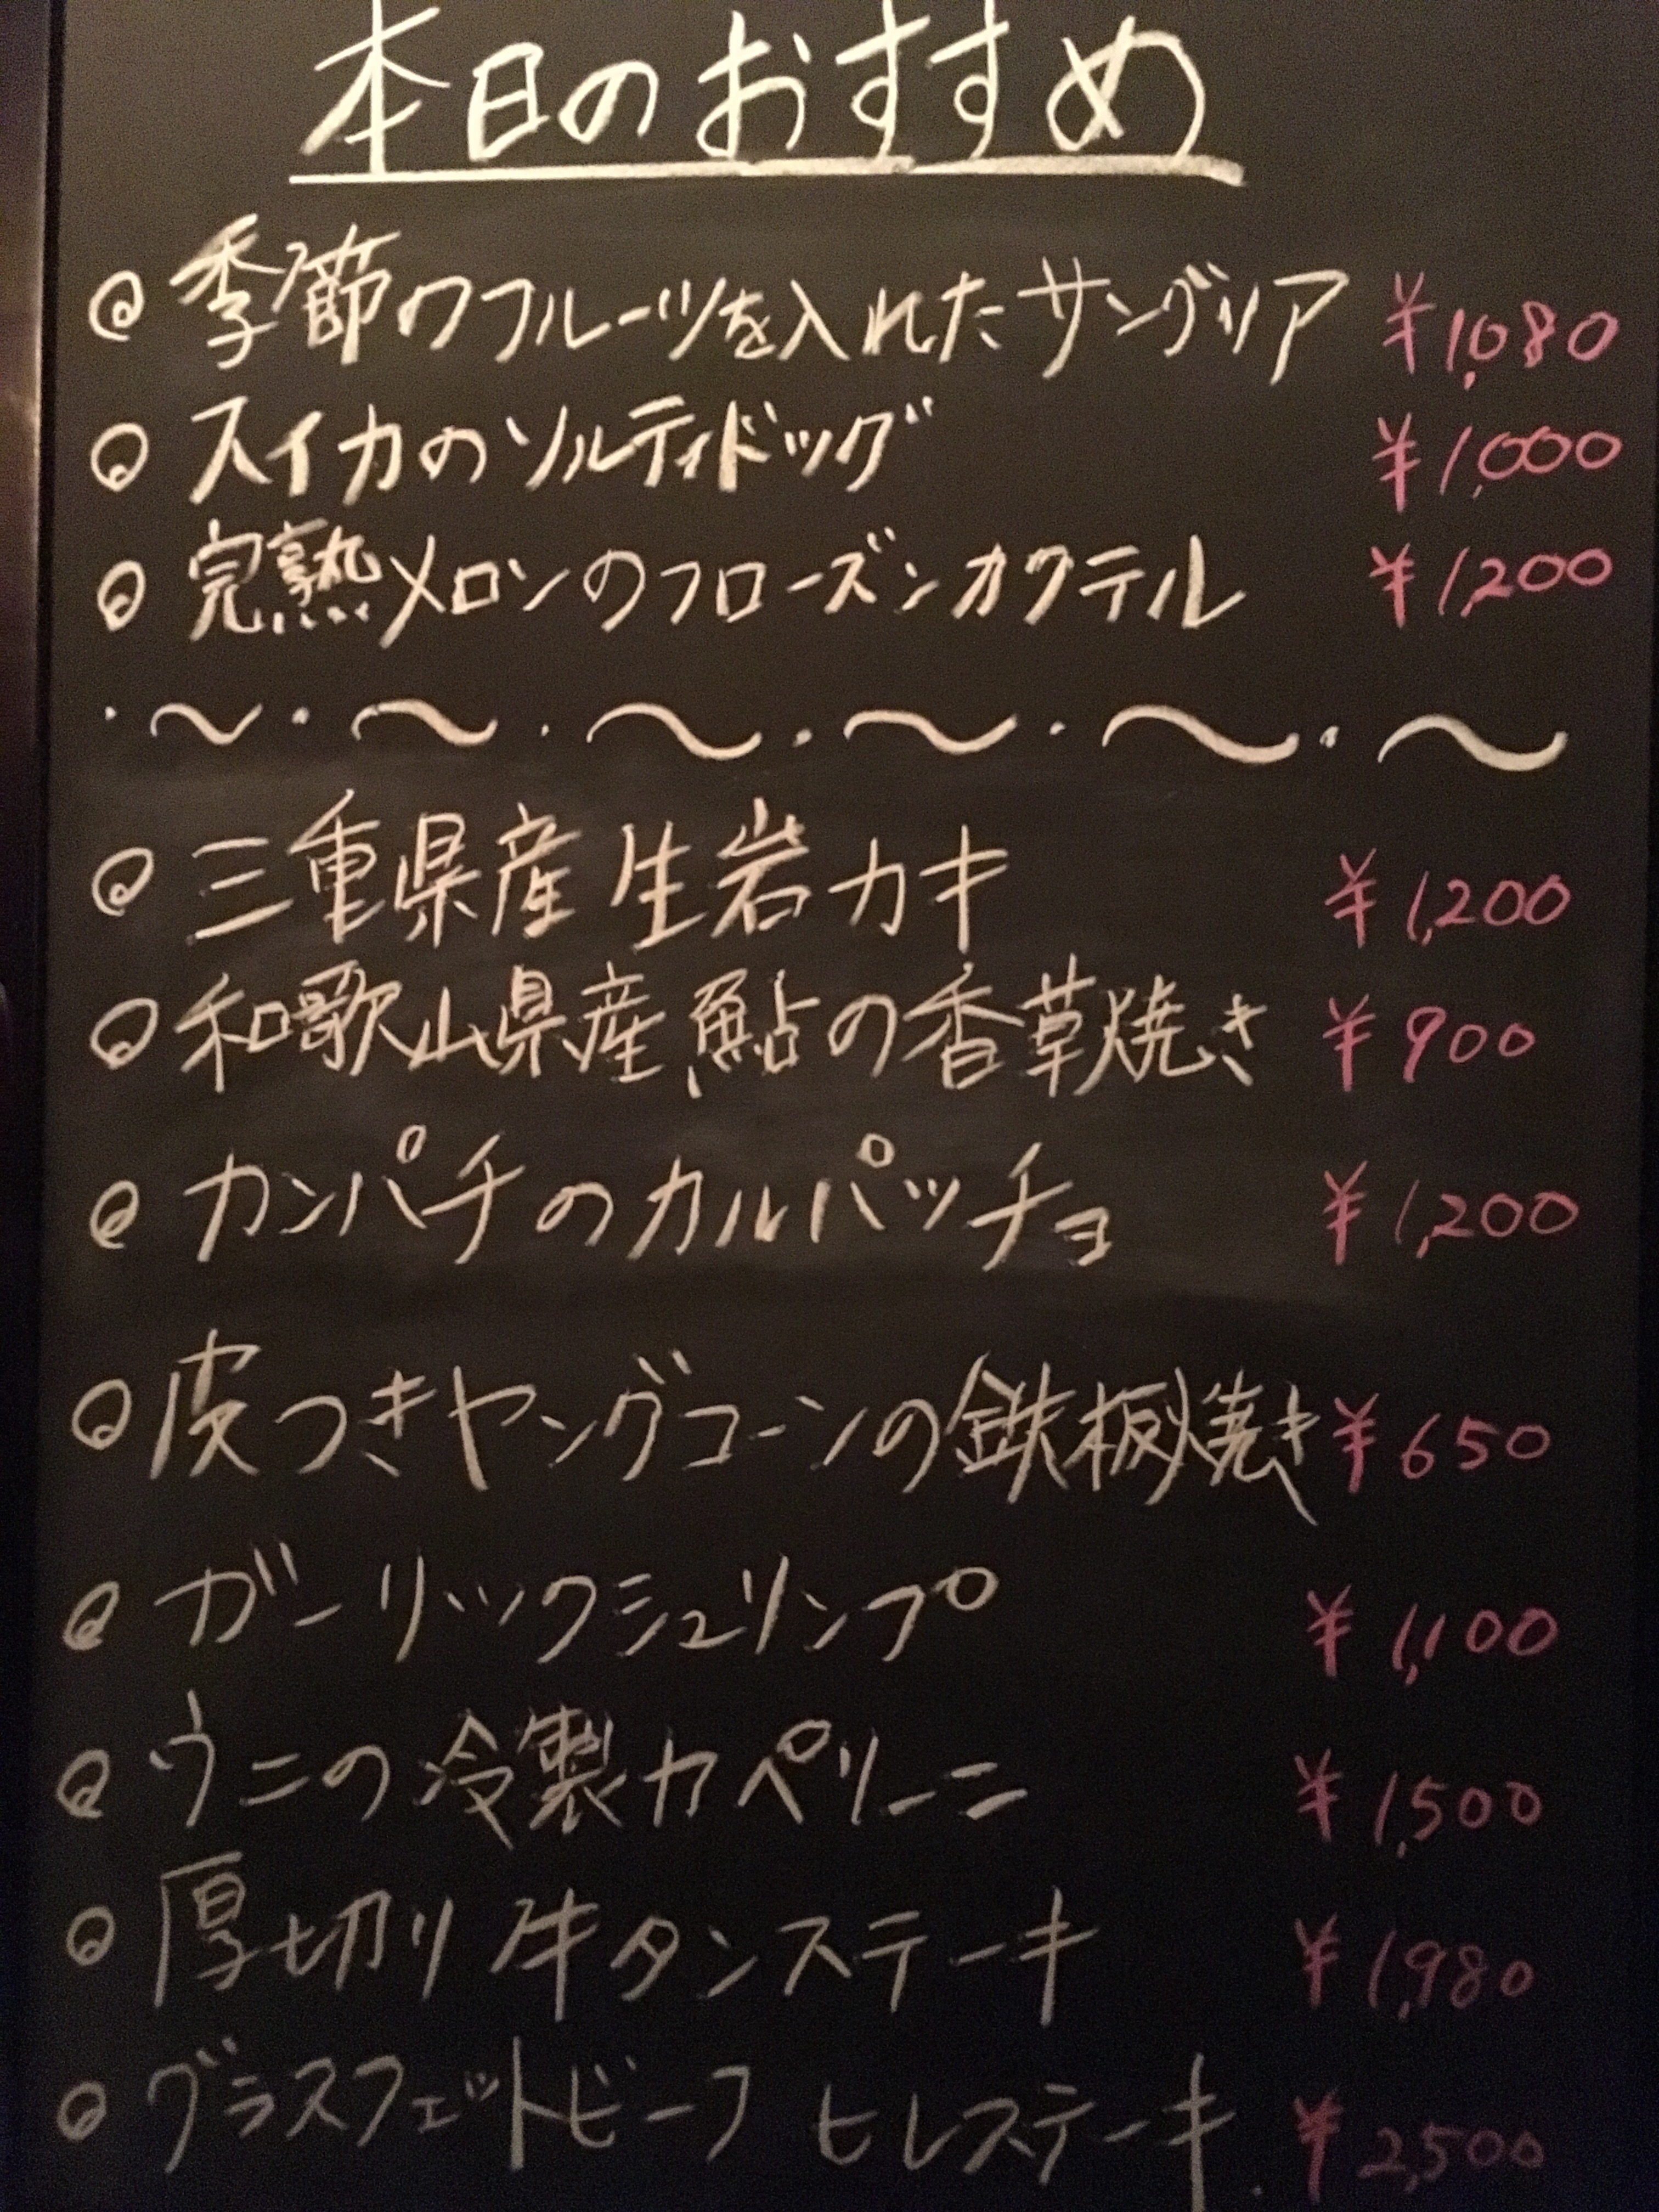 本日のおすすめ
◎ 季節のフルーツを入れたサングリア ¥1,080
◎ スイカのソルティドッグ ¥1,000
◎ 完熟メロンのフローズンカクテル ¥1,200
・〜・〜・〜・〜・〜・〜
◎ 三重県産 生岩カキ ¥1,200
◎ 和歌山県産 鮎の香草焼き ¥900
◎ カンパチのカルパッチョ ¥1,200
◎ 皮つきヤングコーンの鉄板焼き ¥650
◎ ガーリックシュリンプ ¥1,100
◎ ウニの冷製カペリーニ ¥1,500
◎ 厚切り 牛タンステーキ ¥1,980
◎ グラスフェットビーフ ヒレステーキ ¥2,500